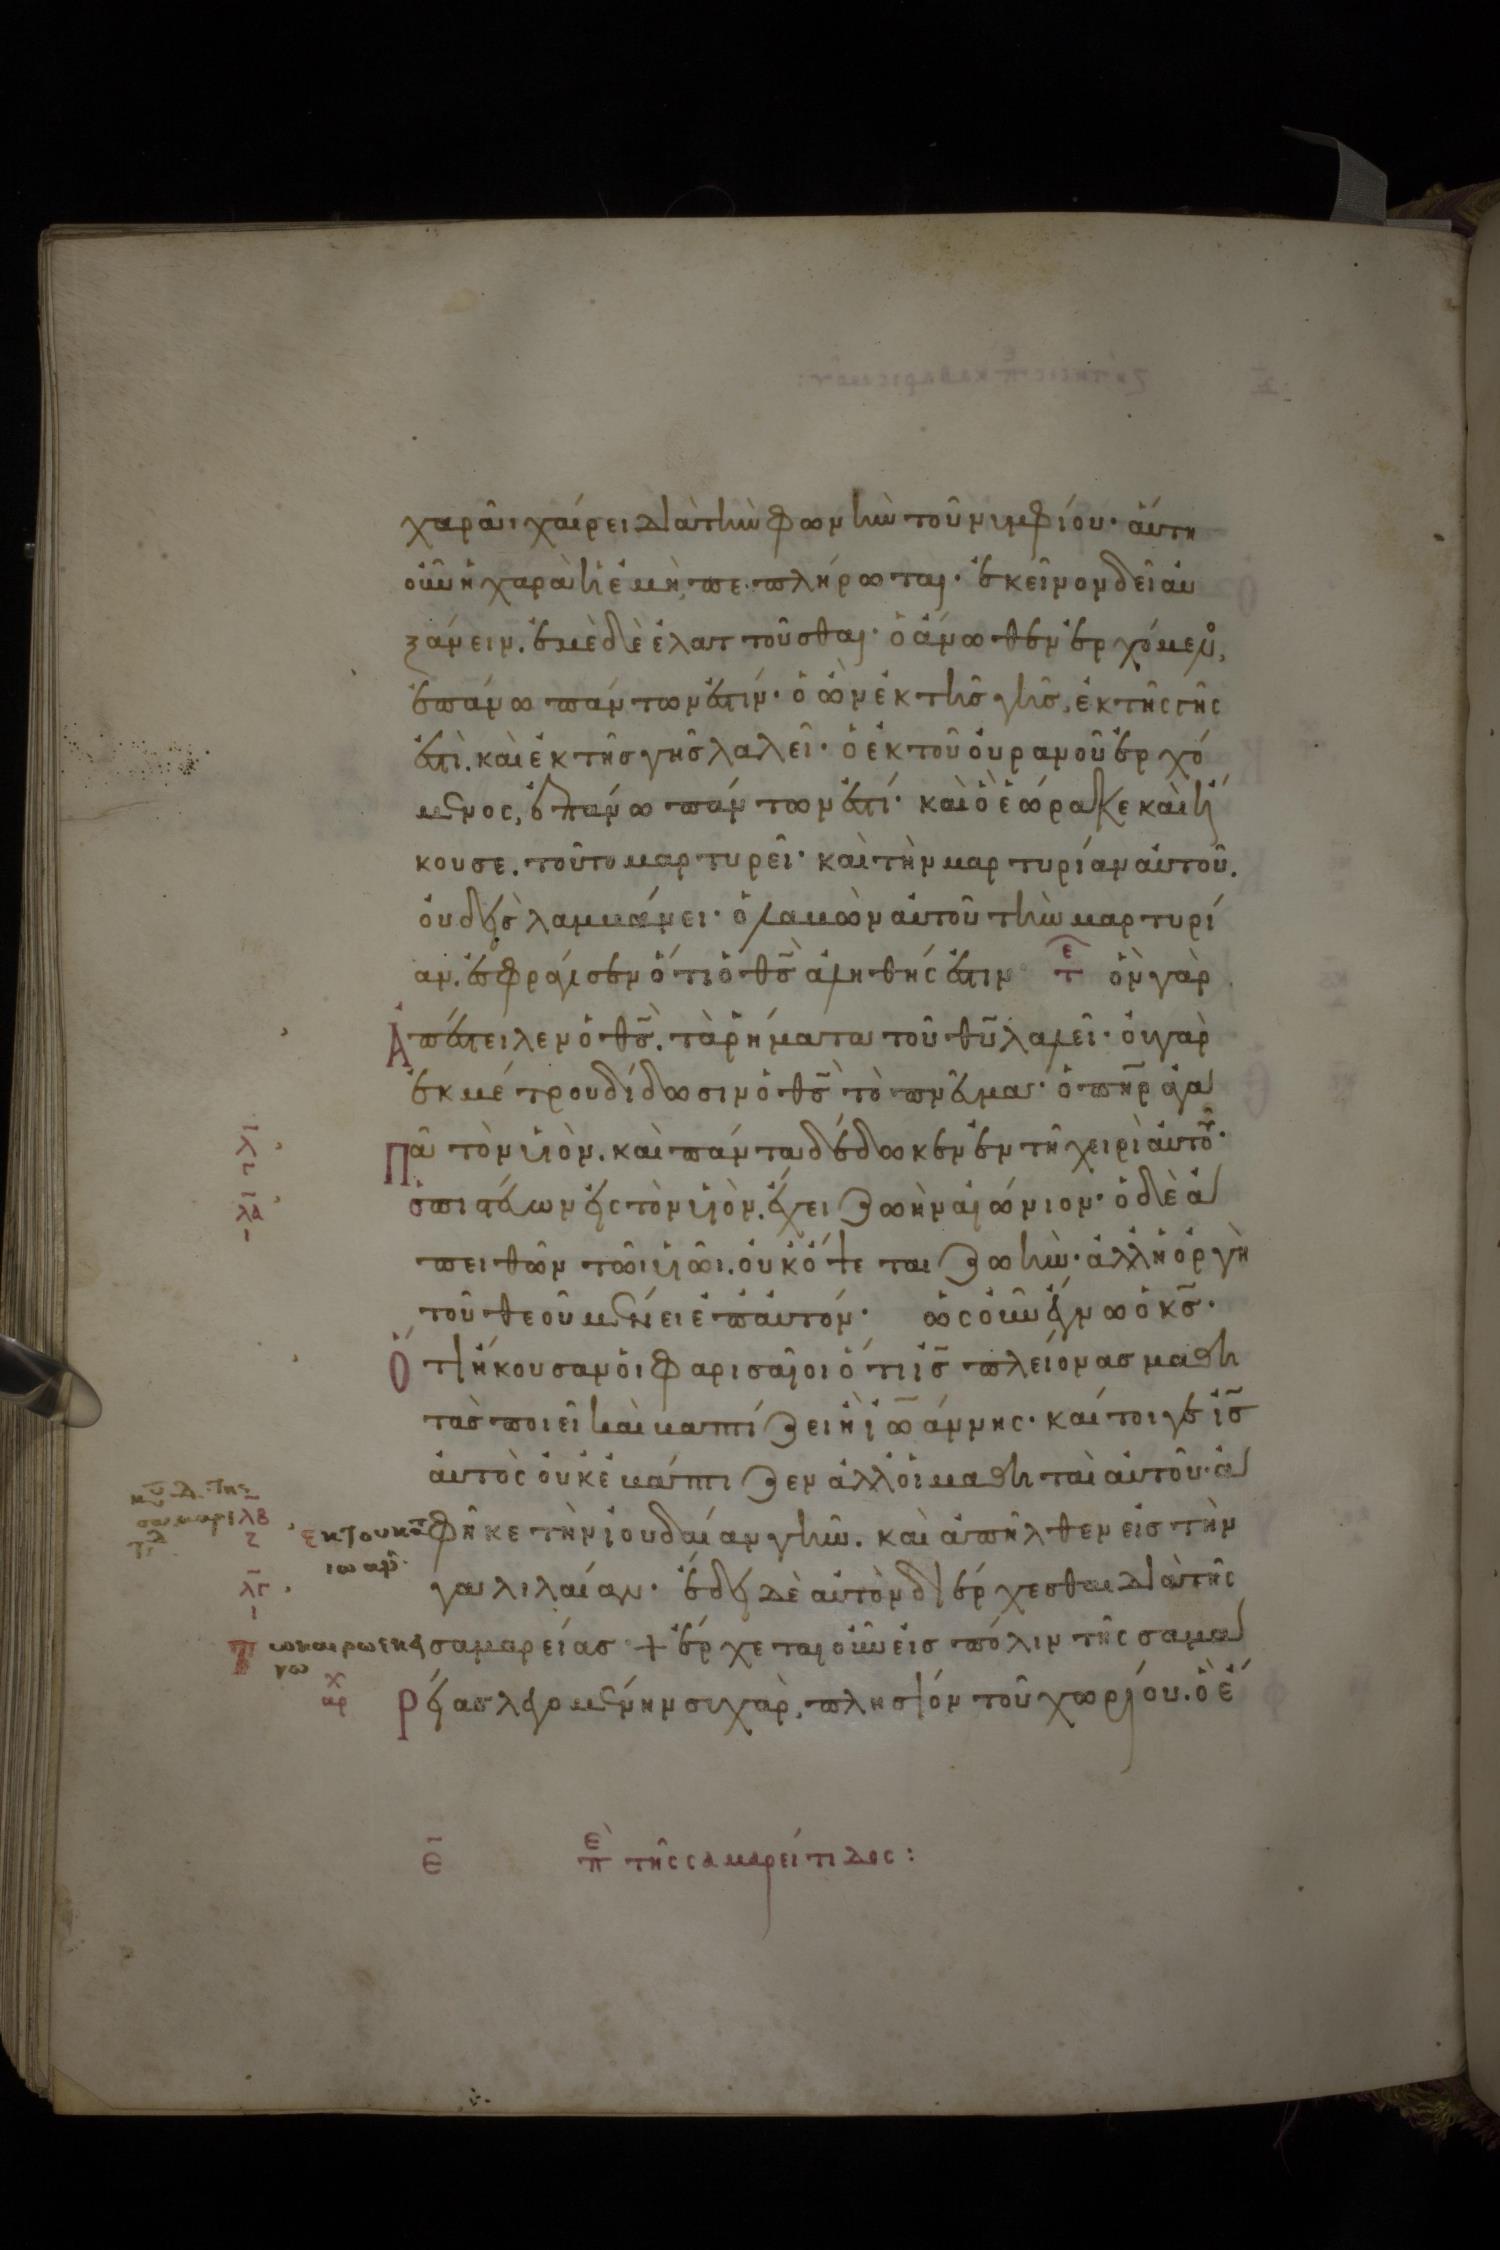 χαρᾶι χαίρει διὰ τὴν φωνὴν τοῦ νυμφίου· ἁύτη
οὖν ἡ χαρὰ ἡ ἐμὴ, πεπλήρωται· ἐκεῖνον δεῖ ἀυ
ξάνειν. ἐμὲ δὲ ἐλαττοῦσθαι· ὁ ἄνωθεν ἐρχόμενος,
ἐπάνω πάντων ἐστίν· ὁ ὢν ἐκ τῆς γῆς, ἐκ τῆς γῆς
ἐστὶ. καὶ ἐκ τῆς γῆς λαλεῖ· ὁ ἐκ τοῦ οὐρανοῦ ἐρχό
μενος, ἐπάνω πάντων ἐστί· καὶ ὃ ἑώρακε καὶ ἤ
κουσε. τοῦτο μαρτυρεῖ· καὶ τὴν μαρτυρίαν ἀυτοῦ.
ὀυδεὶς λαμβάνει· ὁ λαβὼν ἀυτοῦ τὴν μαρτυρί
αν. ἐσφράγισεν ὅτι ὁ θς̅ ἀληθής ἐστιν τε ὃν γὰρ
Ἀπέστειλεν ὁ θς̅. τὰ ῥήματα τοῦ θυ̅ λαλεῖ· ὀυ γὰρ
ἐκ μέτρου δίδωσιν ὁ θς̅ τὸ πνεῦμα· ὁ πη̅ρ ἀγα
Πᾶ τὸν υἱὸν. καὶ πάντα δέδωκεν ἐν τῆ χειρὶ ἀυτοῦ·
λ̅ ζ
ὁ πιστεύων εἰς τὸν υἱὸν. ἔχει ζωὴν αἰώνιον· ὁ δὲ ἀ
λα̅ ι
πειθῶν τῶι υἱῶι. ὀυκ ὄψεται ζωὴν· ἀλλ' ἡ ὀργὴ
τοῦ θεοῦ μένει ἐπ' ἀυτόν· ὡς οὖν ἔγνω ὁ κς̅·
Ὅτι ἤκουσαν ὁι φαρισαῖοι ὅτι ις̅ πλείονας μαθη
τὰς ποιεῖ καὶ βαπτίζει ἢ ἰωάννης· καίτοιγε ις̅
ἀυτὸς ὀυκ ἐβάπτιζεν ἀλλ' ὁι μαθηταὶ ἀυτοῦ· ἀ
λβ̅ ζ
φῆκε τὴν ἰουδαίαν γῆν. καὶ ἀπῆλθεν εἰς τὴν
γαλιλαίαν· ἔδει δὲ ἀυτὸν διέρχεσθαι διὰ τῆς
λγ̅ ι
σαμαρείας + ἔρχεται οὖν εἰς πόλιν τῆς σαμα
αρχ
Ρείας λεγομένην συχὰρ, πλησίον τοῦ χωρίου. ὃ ἔ
ε̅ πε τῆς σαμαρείτιδος: